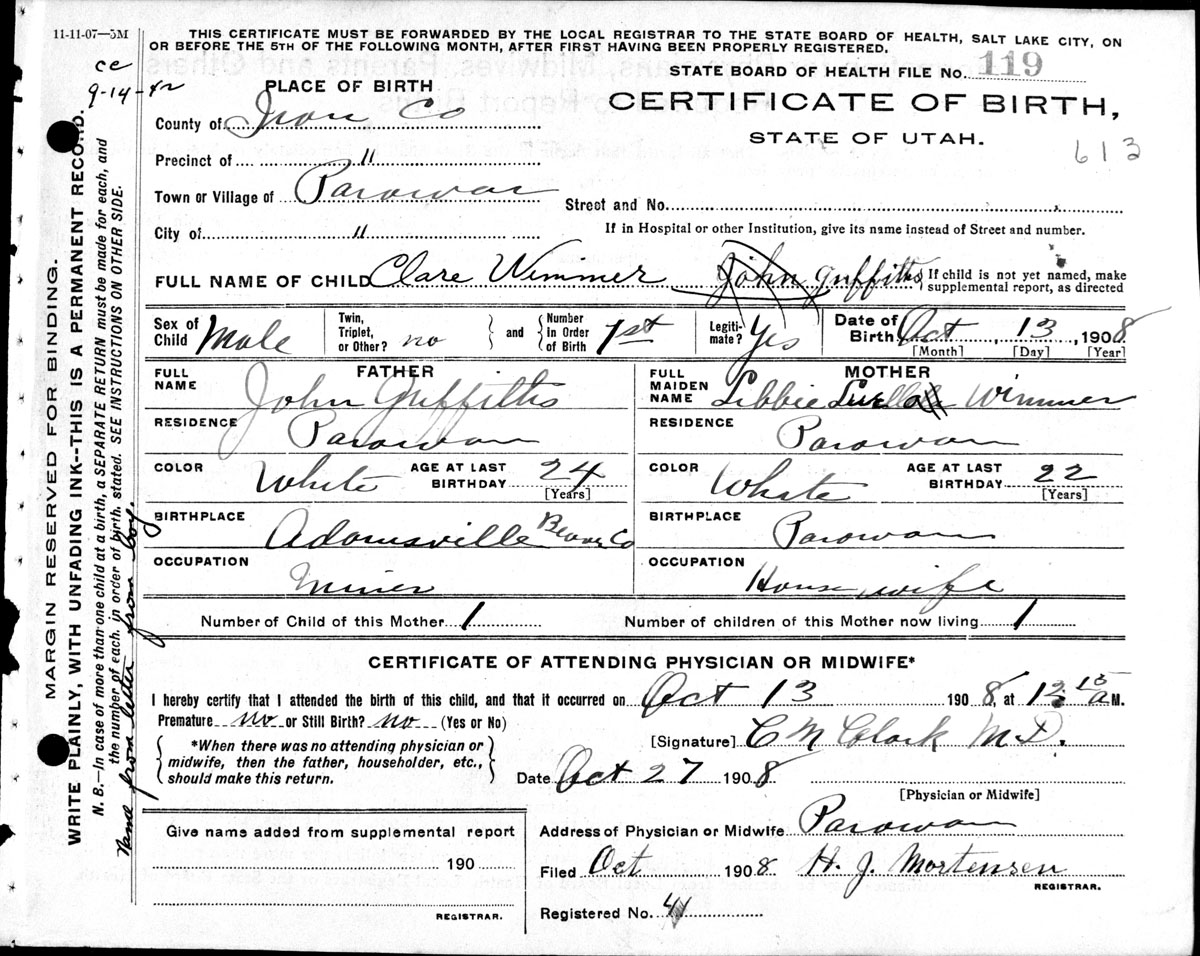 11-11-07—5M
THIS CERTIFICATE MUST BE FORWARDED BY THE LOCAL REGISTRAR TO THE STATE BOARD OF HEALTH, SALT LAKE CITY, ON
OR BEFORE THE 5TH OF THE FOLLOWING MONTH, AFTER FIRST HAVING BEEN PROPERLY REGISTERED.
STATE BOARD OF HEALTH FILE No. 119
ce
9-14-42
PLACE OF BIRTH
CERTIFICATE OF BIRTH,
STATE OF UTAH.
613
County of Iron Co
Precinct of "
Town or Village of Parowan
Street and No.
City of "
If in Hospital or other Institution, give its name instead of Street and number.
FULL NAME OF CHILD Clare Wimmer John Griffiths
{ If child is not yet named, make
supplemental report, as directed
Sex of Child Male
Twin, Triplet, or Other? no
and
Number in Order of Birth 1st
Legiti-mate? Yes
Date of Birth Oct, 13, 1908
[Month] [Day] [Year]
FATHER
FULL NAME John Griffiths
MOTHER
FULL MAIDEN NAME Libbie Wimmer
RESIDENCE Parowan
RESIDENCE Parowan
COLOR White AGE AT LAST BIRTHDAY 24 [Years]
COLOR White AGE AT LAST BIRTHDAY 22 [Years]
BIRTHPLACE Adamsville Beaver Co
BIRTHPLACE Parowan
OCCUPATION Miner
OCCUPATION House wife
Number of Child of this Mother 1
Number of children of this Mother now living 1
CERTIFICATE OF ATTENDING PHYSICIAN OR MIDWIFE*
I hereby certify that I attended the birth of this child, and that it occurred on Oct 13 1908 at 12 15 a M.
Premature no or Still Birth? no (Yes or No)
*When there was no attending physician or
midwife, then the father, householder, etc.,
should make this return.
[Signature] C M Clark M.D.
Date Oct 27 1908
[Physician or Midwife]
Give name added from supplemental report
190
REGISTRAR.
Address of Physician or Midwife Parowan
Filed Oct 1908 H. J. Mortensen
REGISTRAR.
Registered No. 41
MARGIN RESERVED FOR BINDING.
WRITE PLAINLY, WITH UNFADING INK--THIS IS A PERMANENT RECORD.
N. B.—In case of more than one child at a birth, a SEPARATE RETURN must be made for each, and
the number of each, in order of birth, stated. SEE INSTRUCTIONS ON OTHER SIDE.
Name from letter from boy.